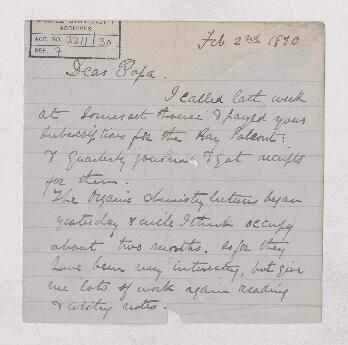 ARCHIVES
ACC. NO. 2211/30
REF. 7
Feb 2nd 1890
Dear Papa.
I called last week
at Somerset House & payed your
Subscriptions for the Ray
& Quarterly Journal & got receipts
for them.
The Organic Chemistry lectures began
yesterday & will I think occupy
about two months. So far they
have been very interesting, but give
me lots of work again reading
& writing notes.